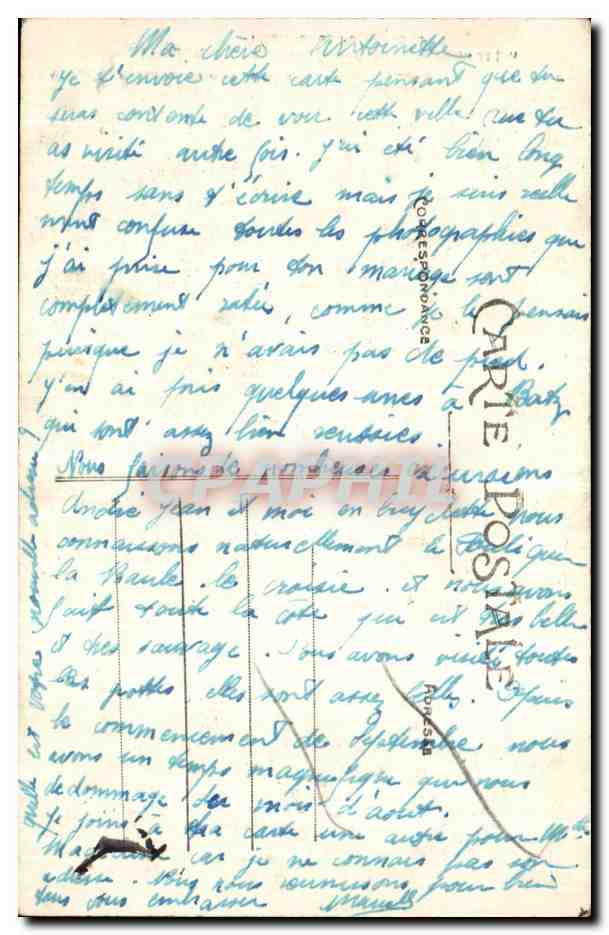 Ma chère Antoinette
Je t'envoie cette carte pensant que tu
seras contente de voir cette ville que tu
as visité autre fois. J'ai été bien long
temps sans t'écrire mais je suis réelle
ment confuse toutes les photographies que
j'ai prise pour ton mariage sont
complètement ratée, comme je le pensais
puisque je n'avais pas de pied.
J'en ai pris quelques unes à Batz
qui sont assez bien réussies.
Nous faisons de nombreuses excursions
André Jean et moi en bicyclette nous
connaissons naturellement le Pouliguen
la Baule le croisic et nous avons
fait toute la côte qui est très belle
et très sauvage. Nous avons visité toutes
les grottes elles sont assez belles. Depuis
le commencement de septembre nous
avons un temps magnifique qui nous
dedommage du mois d'août.
Je joins à ta carte une autre pour Mlle
Madeleine car je ne connais pas son
adresse. Nous nous réunissons pour bien
tous vous embrasser
quelle est votre nouvelle adresse?
CORRESPONDANCE
CARTE POSTALE
ADRESSE
CPAPHIL